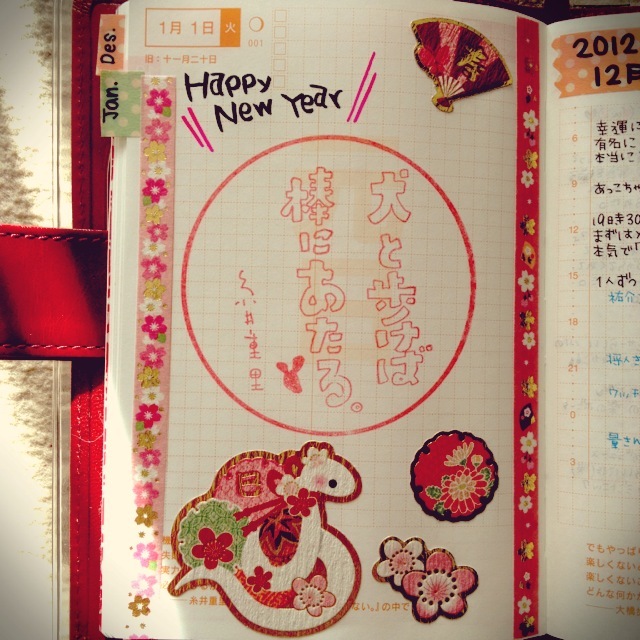 Des.
Jan.
1月 1日 火
001
旧:十一月二十日
Happy
New Year
犬と歩けば
棒にあたる。
糸井重里
巳
糸井重里
の中で
2012
12月
6
幸運に
有名に
本当に
9
あっちゃ
12
19時30
まずは
本気で
15
1人ずつ
祐介
18
21
ウッチ
0
量さん
3
でもやっぱ
楽しくない
楽しくない
どんな何か